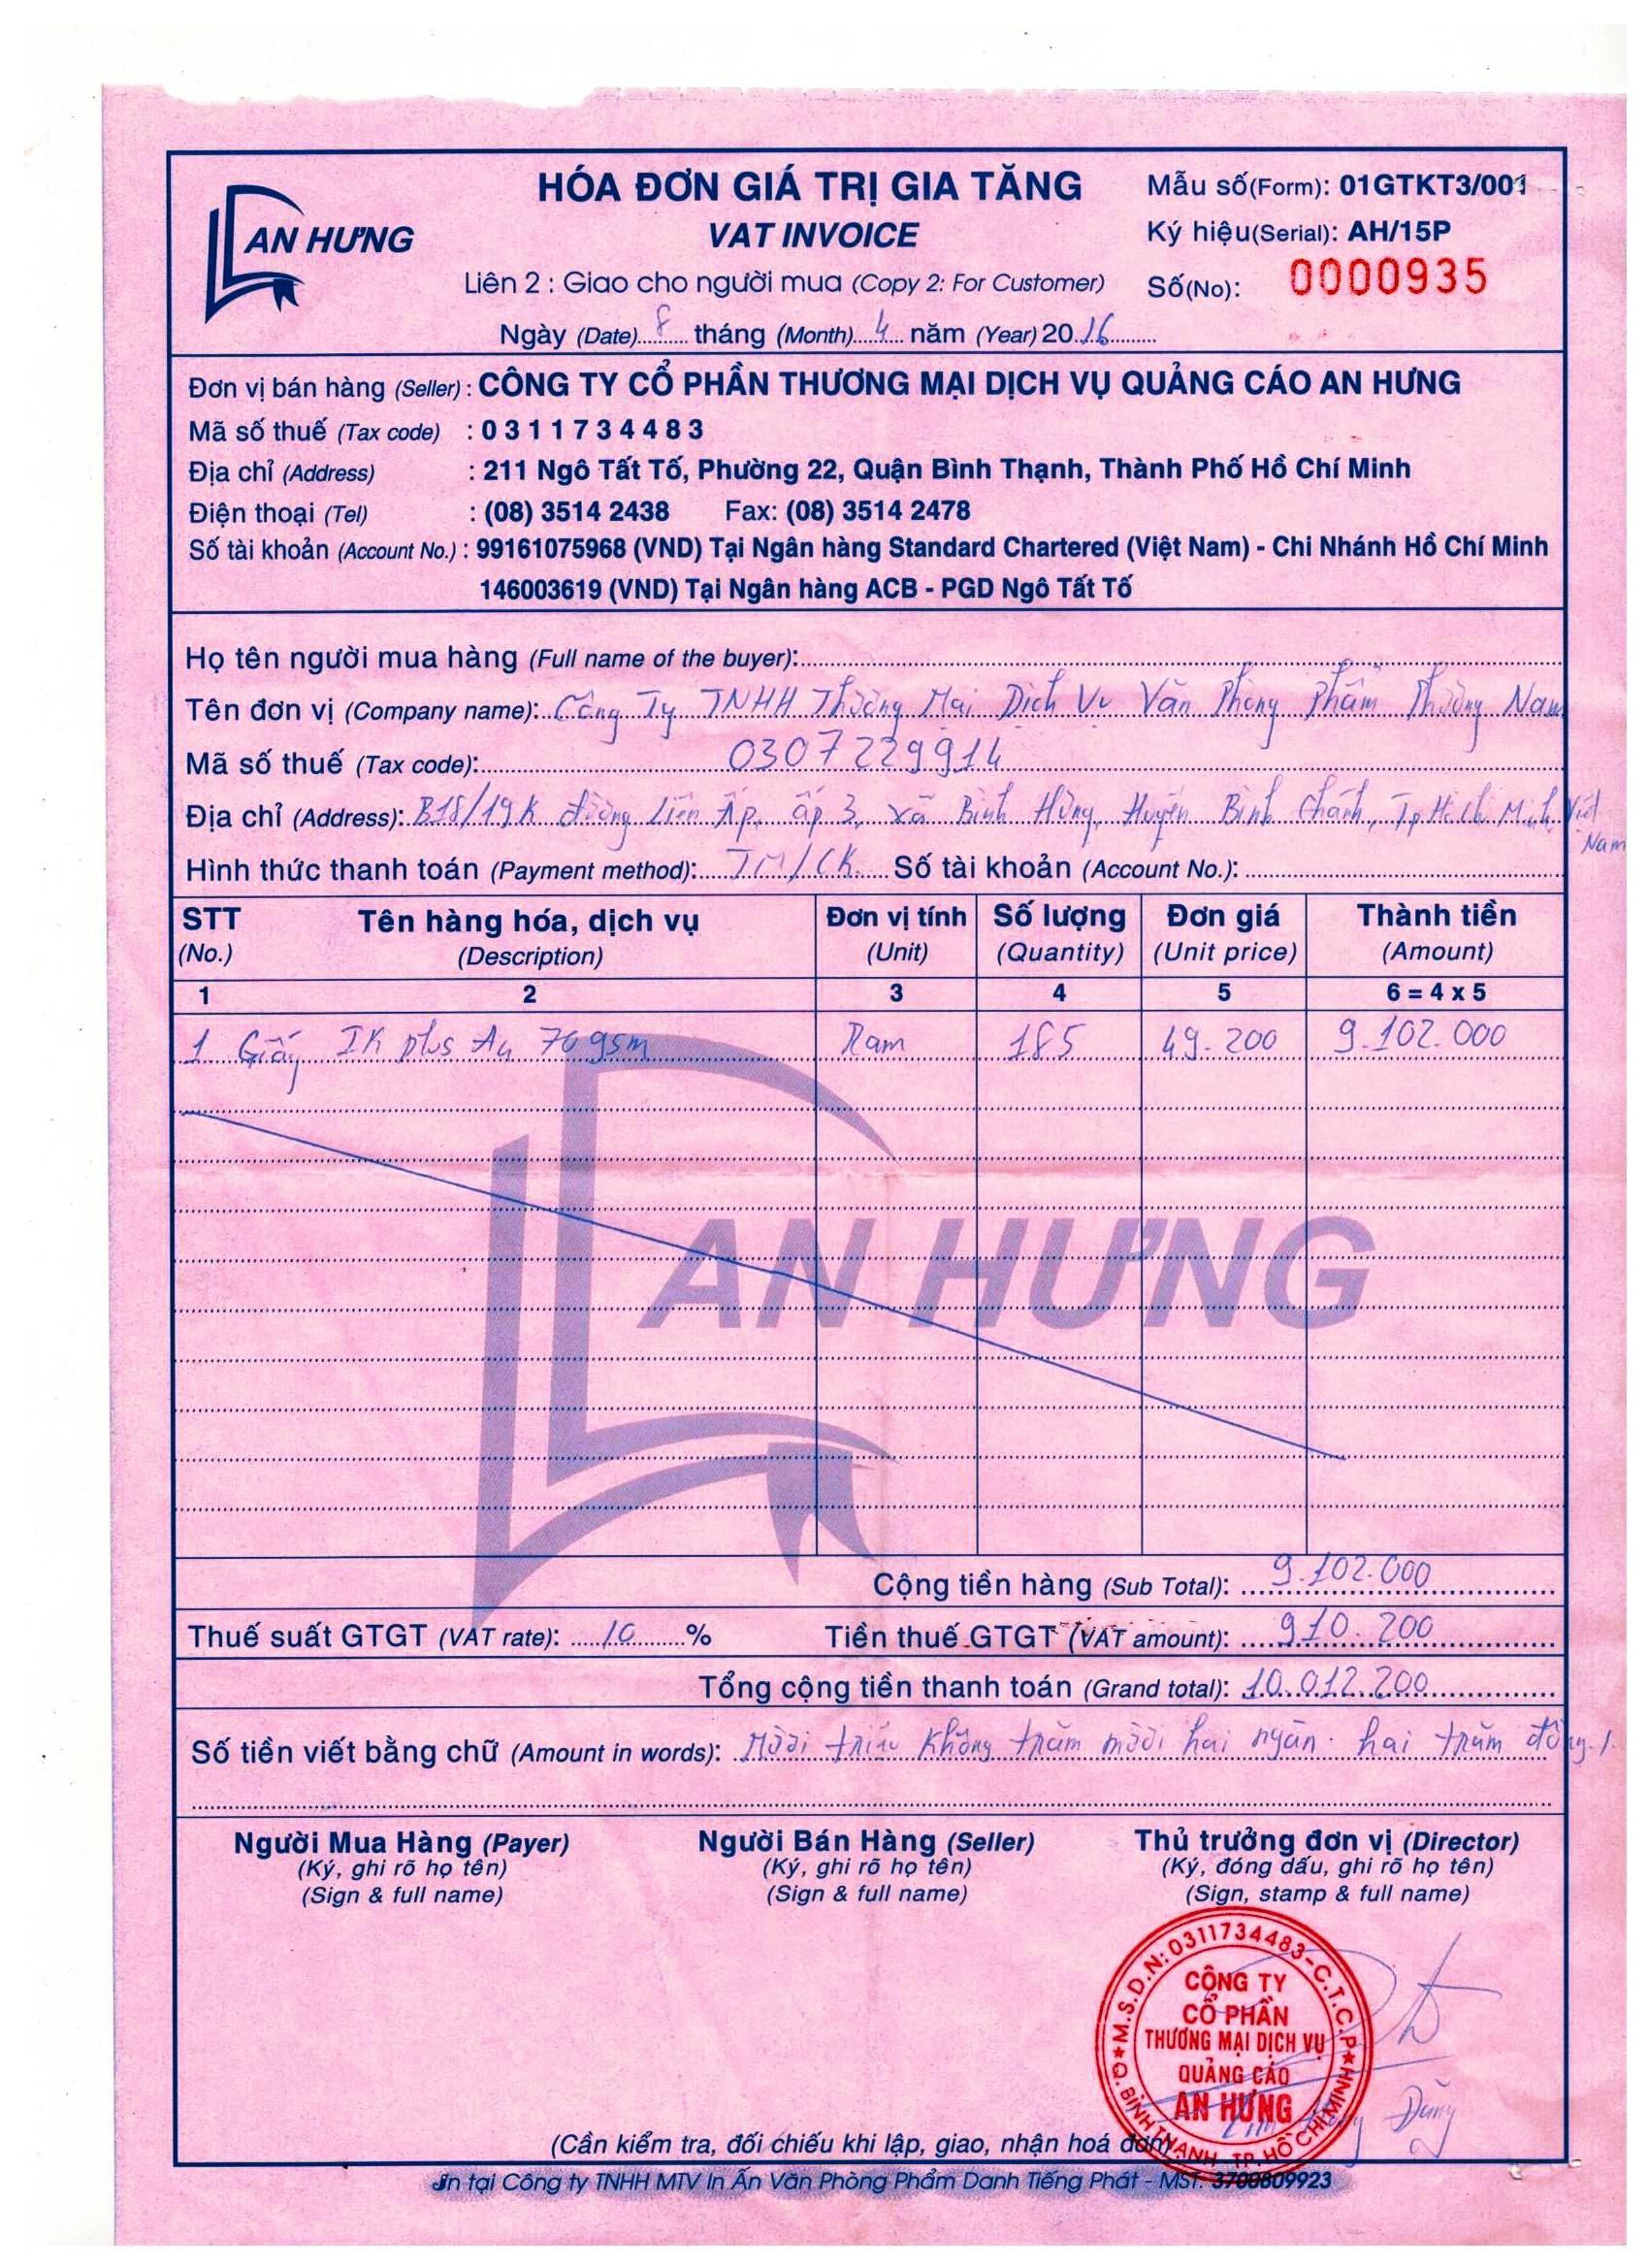 AN HƯNG
HÓA ĐƠN GIÁ TRỊ GIA TĂNG
VAT INVOICE
Liên 2 : Giao cho người mua (Copy 2: For Customer)
Ngày (Date) 8 tháng (Month) 4 năm (Year) 2016
Mẫu số(Form): 01GTKT3/001
Ký hiệu(Serial): AH/15P
Số(No): 0000935
Đơn vị bán hàng (Seller) : CÔNG TY CỔ PHẦN THƯƠNG MẠI DỊCH VỤ QUẢNG CÁO AN HƯNG
Mã số thuế (Tax code) : 0 3 1 1 7 3 4 4 8 3
Địa chỉ (Address) : 211 Ngô Tất Tố, Phường 22, Quận Bình Thạnh, Thành Phố Hồ Chí Minh
Điện thoại (Tel) : (08) 3514 2438 Fax: (08) 3514 2478
Số tài khoản (Account No.) : 99161075968 (VND) Tại Ngân hàng Standard Chartered (Việt Nam) - Chi Nhánh Hồ Chí Minh
146003619 (VND) Tại Ngân hàng ACB - PGD Ngô Tất Tố
Họ tên người mua hàng (Full name of the buyer):
Tên đơn vị (Company name): Công Ty TNHH Thương Mại Dịch Vụ Văn Phòng Phẩm Phương Nam
Mã số thuế (Tax code): 0307229914
Địa chỉ (Address): B18/19K đường Liên Ấp, ấp 3, xã Bình Hưng, Huyện Bình Chánh, Tp Hồ Chí Minh, Việt
Nam
Hình thức thanh toán (Payment method): TM/CK Số tài khoản (Account No.):
STT Tên hàng hóa, dịch vụ Đơn vị tính Số lượng Đơn giá Thành tiền
(No.) (Description) (Unit) (Quantity) (Unit price) (Amount)
1 2 3 4 5 6 = 4 x 5
1 Giấy IK plus A4 70gsm Ram 185 49.200 9.102.000
AN HƯNG
Cộng tiền hàng (Sub Total): 9.102.000
Thuế suất GTGT (VAT rate): 10 % Tiền thuế GTGT (VAT amount): 910.200
Tổng cộng tiền thanh toán (Grand total): 10.012.200
Số tiền viết bằng chữ (Amount in words): Mười triệu không trăm mười hai ngàn hai trăm đồng./.
Người Mua Hàng (Payer) Người Bán Hàng (Seller) Thủ trưởng đơn vị (Director)
(Ký, ghi rõ họ tên) (Ký, ghi rõ họ tên) (Ký, đóng dấu, ghi rõ họ tên)
(Sign & full name) (Sign & full name) (Sign, stamp & full name)
M.S.D.N: 0311734483-C.T.C.P
CÔNG TY
CỔ PHẦN
THƯƠNG MẠI DỊCH VỤ
QUẢNG CÁO
AN HƯNG
Q. BÌNH THẠNH TP. HỒ CHÍ MINH
Dũng
(Cần kiểm tra, đối chiếu khi lập, giao, nhận hoá đơn)
In tại Công ty TNHH MTV In Ấn Văn Phòng Phẩm Danh Tiếng Phát - MST: 3700809923